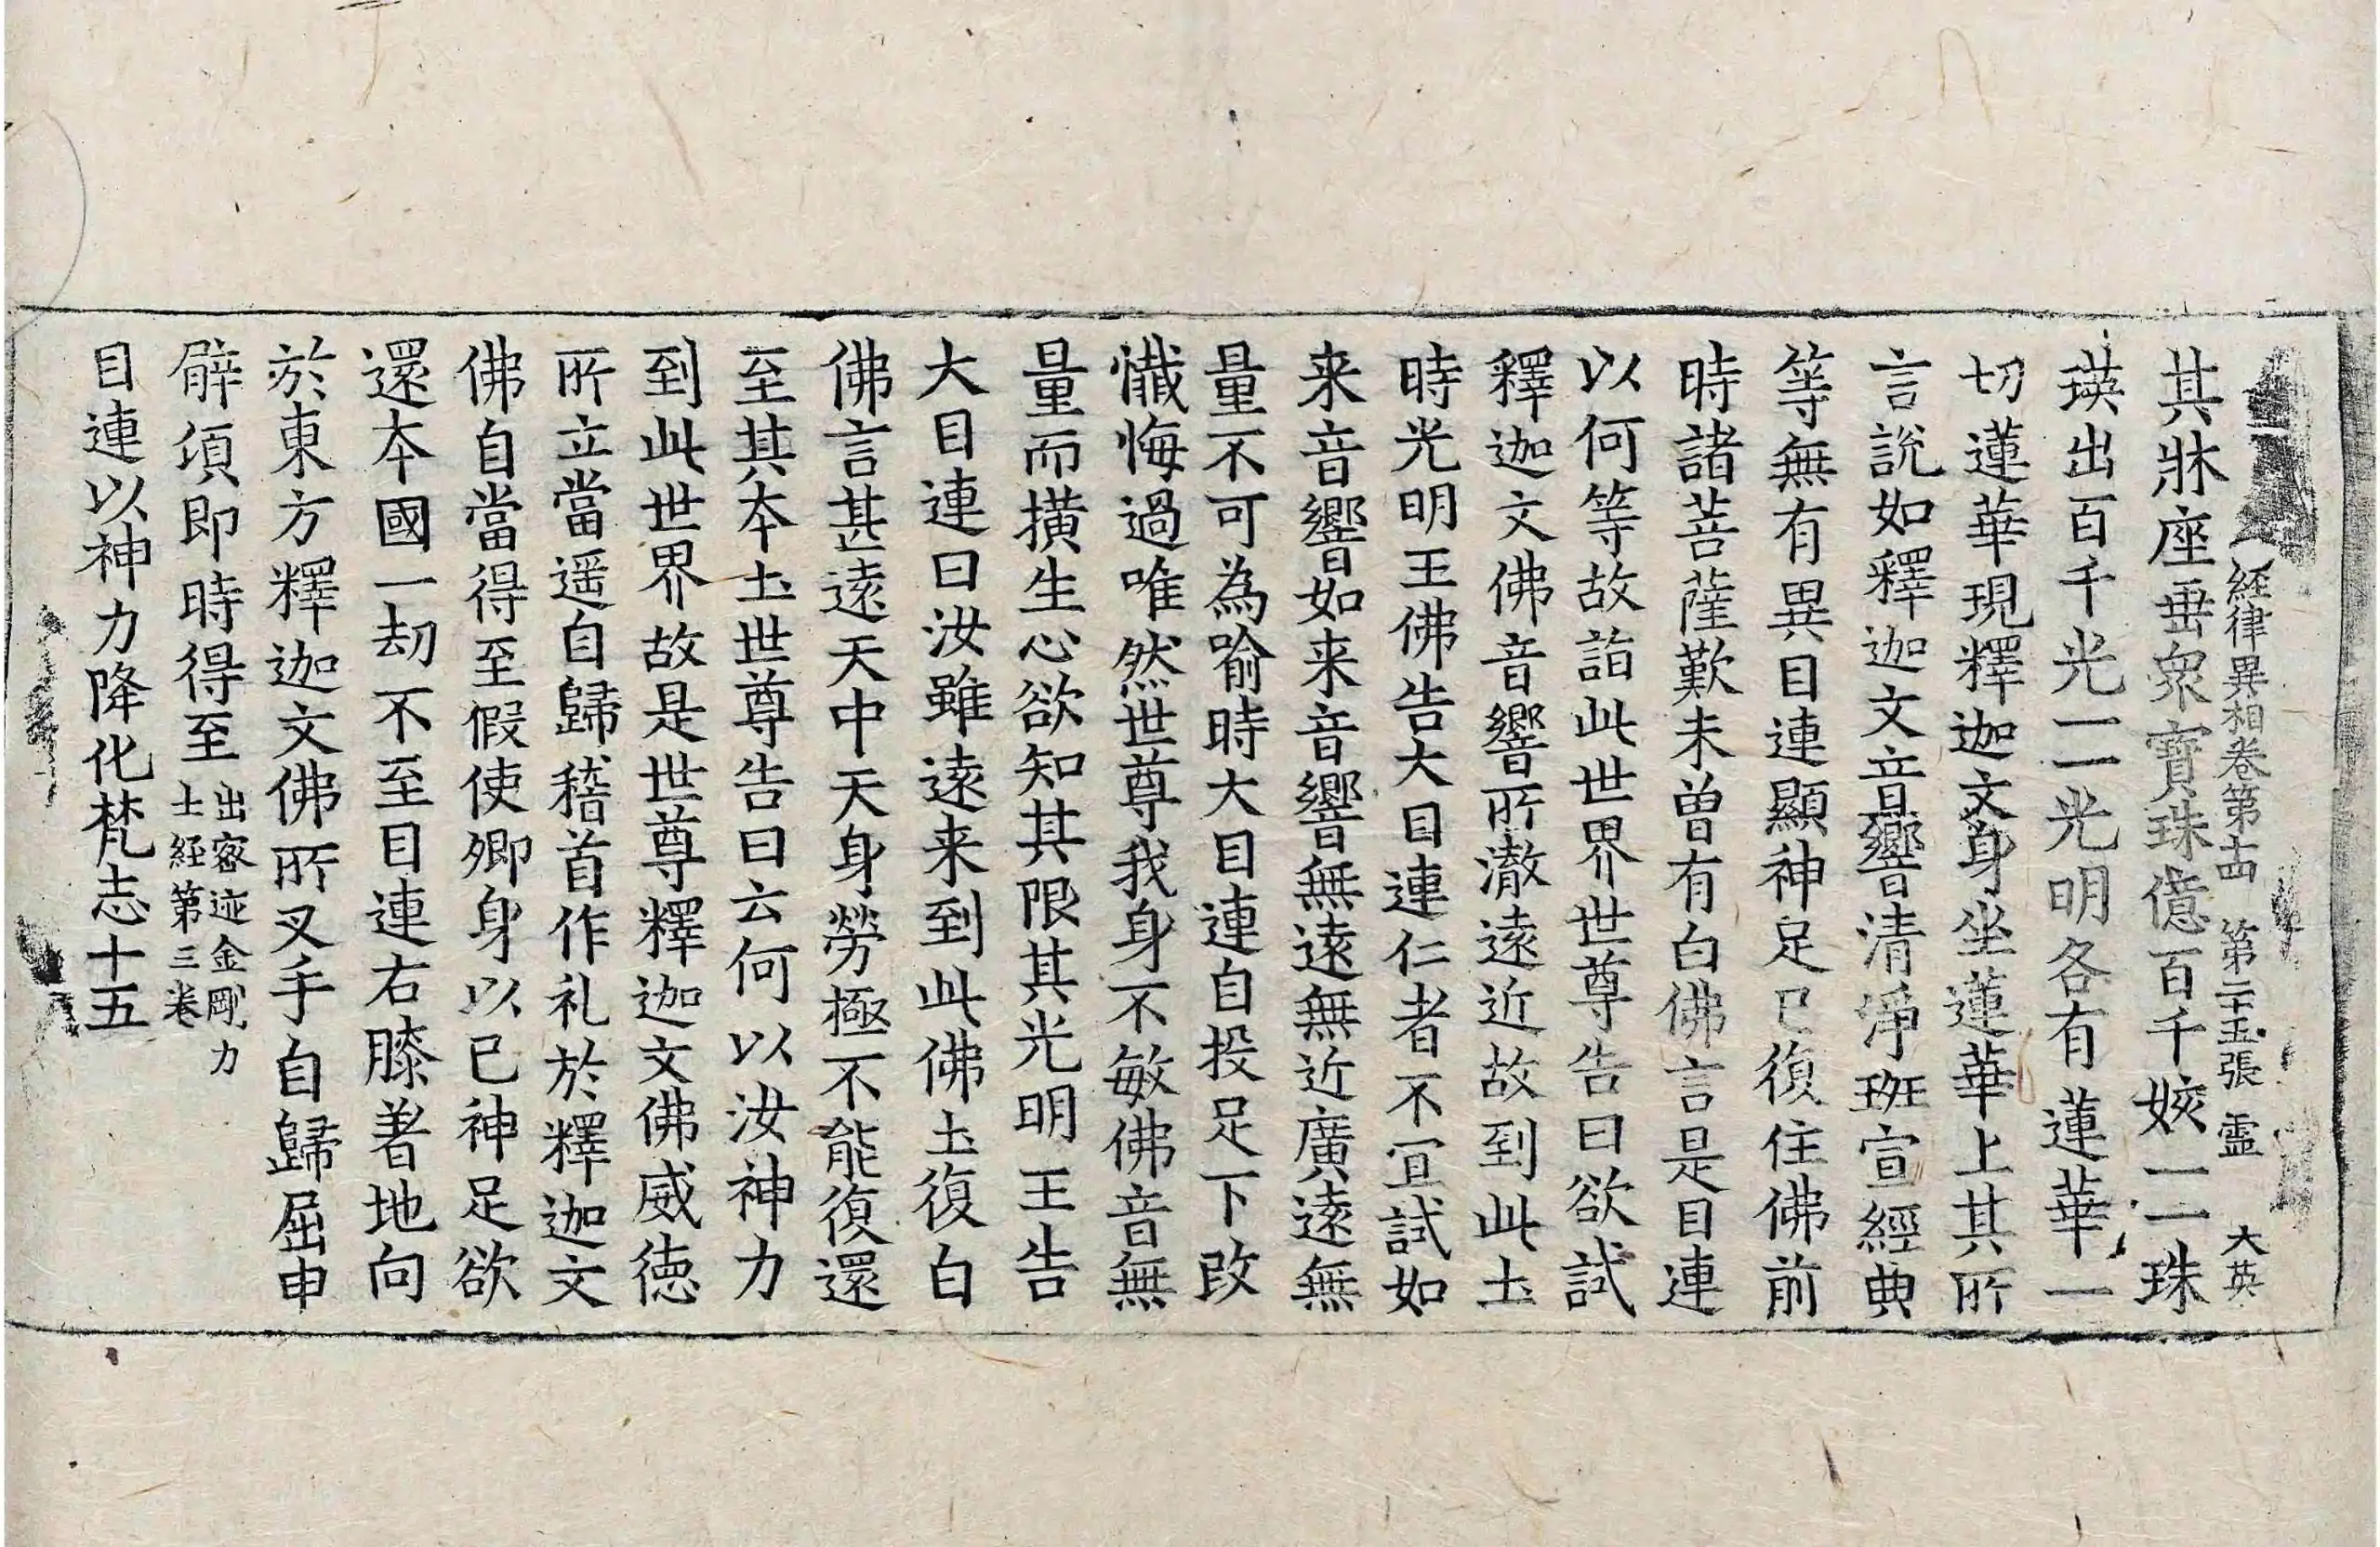 經律異相卷第十四　第二十五張　靈　大英
其牀座垂衆寳珠億百千姟一一珠
瑛出百千光一一光明各有蓮華一
切蓮華現釋迦文身坐蓮華上其所
言說如釋迦文音響清淨班宣經典
等無有異目連顯神足已復住佛前
時諸菩薩歎未曾有白佛言是目連
以何等故詣此世界世尊告曰欲試
釋迦文佛音響所澈遠近故到此土
時光明王佛告大目連仁者不宜試如
来音響如来音響無遠無近廣遠無
量不可為喻時大目連自投足下改
懺悔過唯然世尊我身不敏佛音無
量而撗生心欲知其限其光明王告
大目連曰汝雖遠来到此佛土復白
佛言甚遠天中天身勞極不能復還
至其本土世尊告曰云何以汝神力
到此世界故是世尊釋迦文佛威徳
所立當遥自歸稽首作礼於釋迦文
佛自當得至假使卿身以已神足欲
還本國一劫不至目連右膝著地向
於東方釋迦文佛所叉手自歸屈申
臂湏即時得至出密迹金剛力士經第三卷
目連以神力降化梵志十五